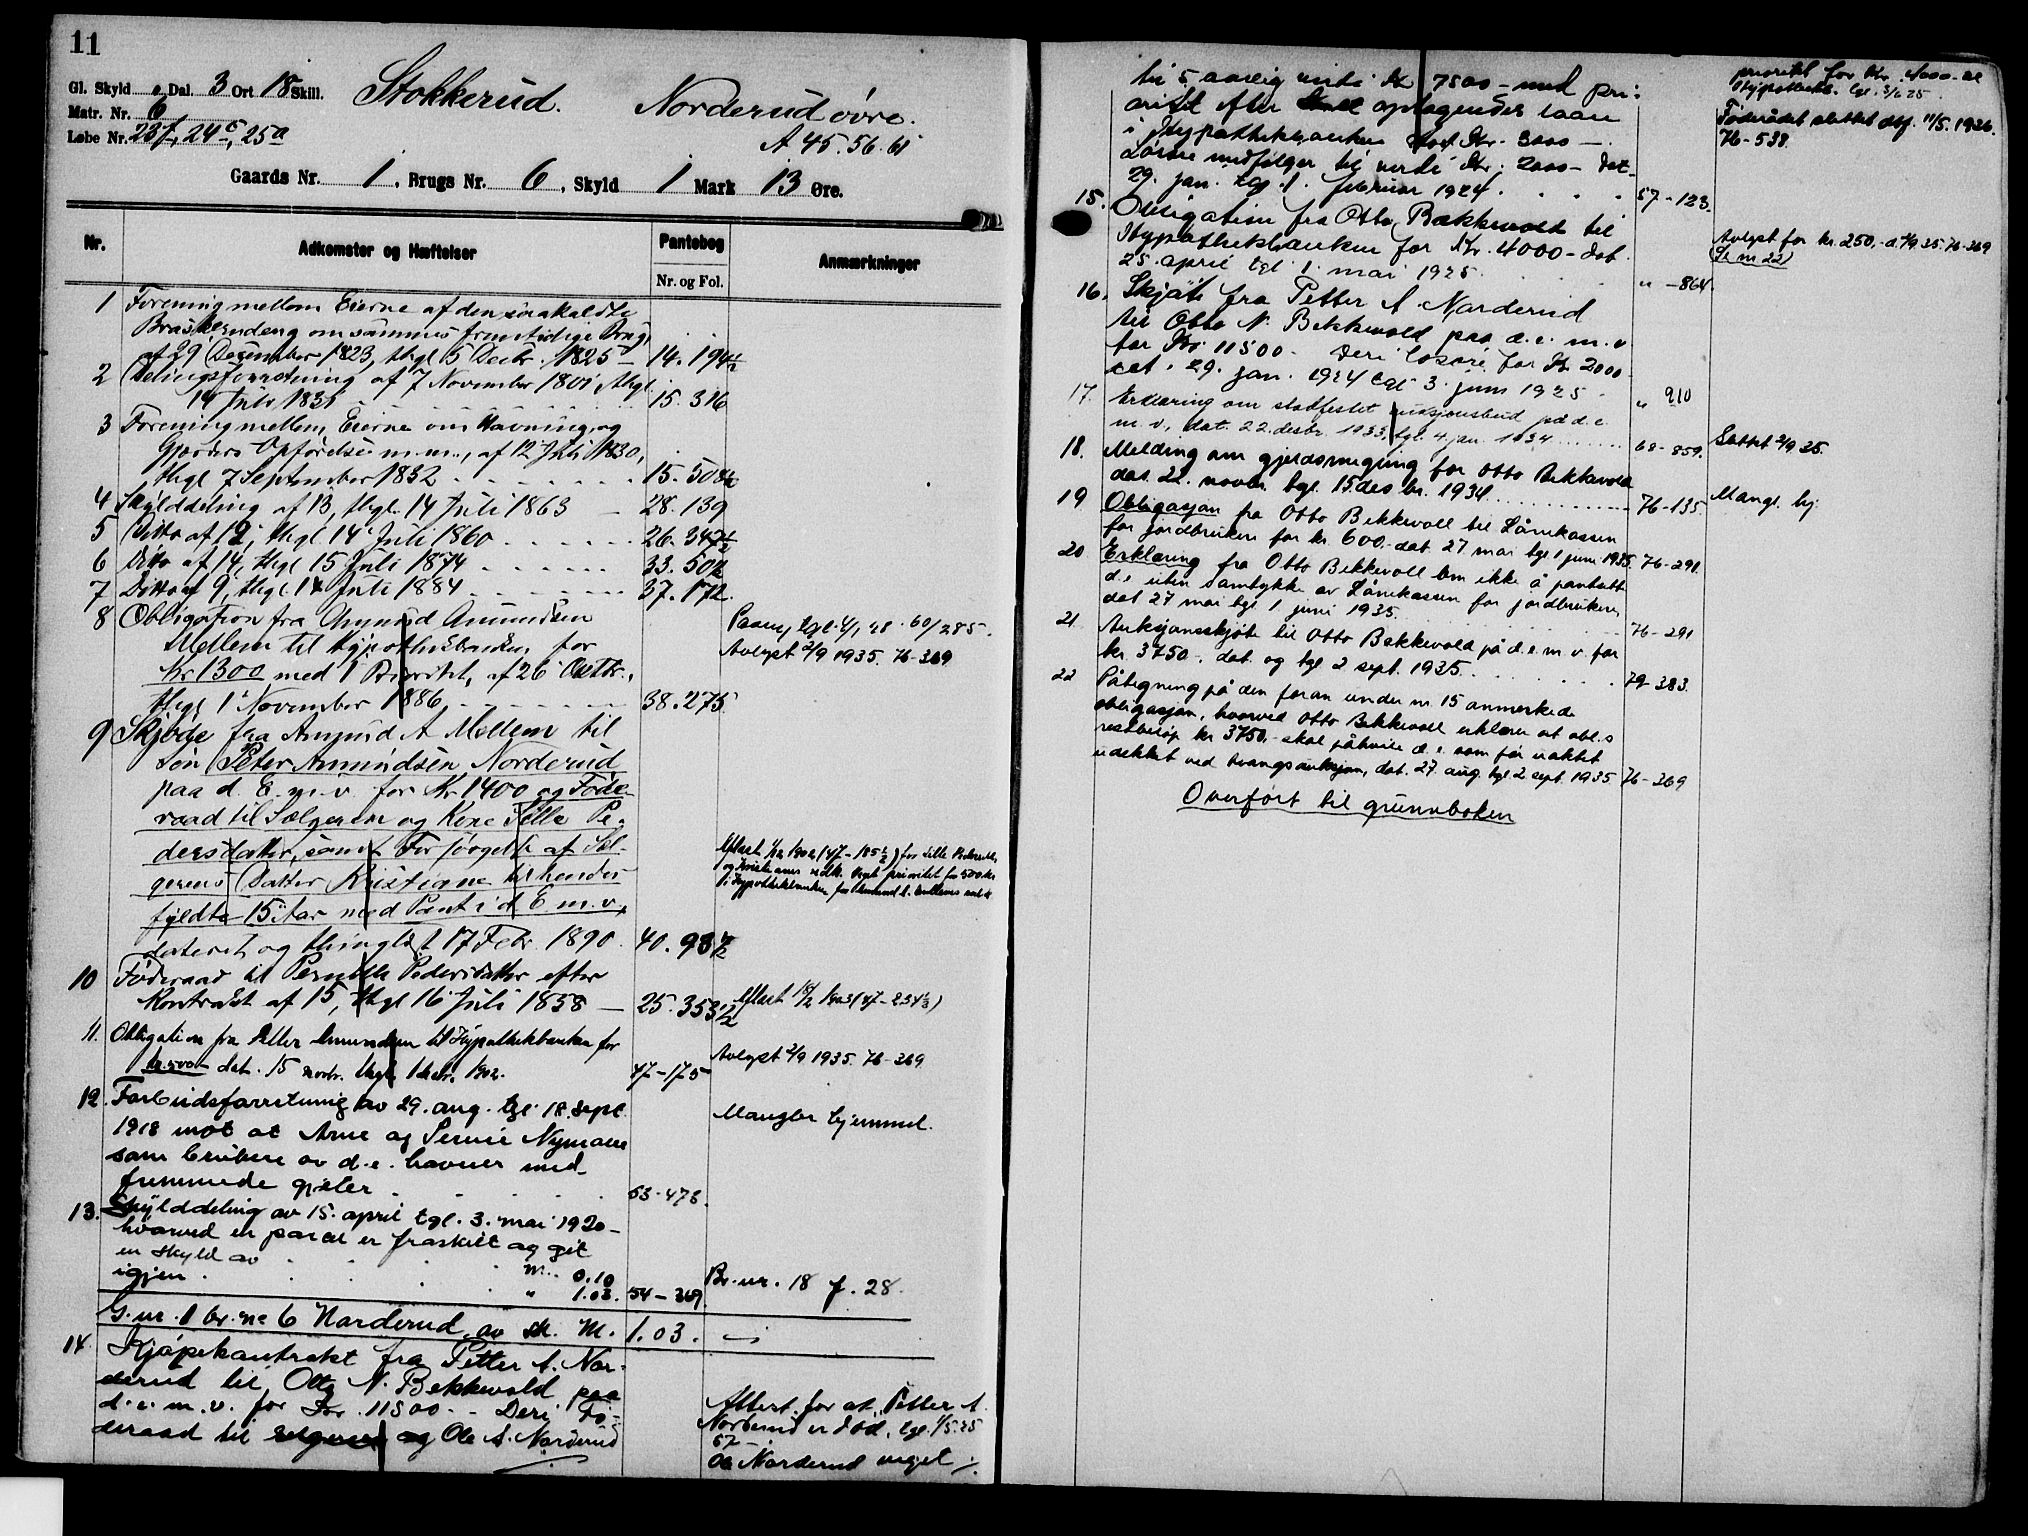 11
Gl. Skyld " Dal. 3 Ort 18 Skill.
Matr. Nr. 6
Løbe Nr. 23f, 24c, 25a
Stokkerud. Norderud øvre.
A 45.56.61
Gaards Nr. 1, Brugs Nr. 6, Skyld 1 Mark 13 Øre.
Nr. Adkomster og Hæftelser Pantebog Anmærkninger
Nr. og Fol.
1 Forening mellem Eierne af den saakaldte
om sammes fremtidige Brug,
af 29 December 1823, thgl 5 Decbr. 1825 14. 194½
2 Delingsforretning af 7 November 1801, thgl.
14 Juli 1831 15. 316
3 Forening mellem Eierne om Havning, og
Gjærders Opførelse m.m., af 12 Juli 1830,
thgl 7 September 1832 15. 508½
4 Skylddeling af 13, thgl. 14 Juli 1863 28. 139
5 Ditto af 12, thgl 14 Juli 1860 26. 347½
6 Ditto af 14, thgl 15 Juli 1874 33. 50½
7 Ditto af 9, thgl 14 Juli 1884 37. 172.
8 Obligation fra Amund Amundsen
Mellem til Hypothekbanken, for
Kr 1300 med 1 Prioritet, af 26 Octbr.,
thgl 1 November 1886 38. 275.
tgl. 4/1 28. 60/285.
Avlyst 2/9 1935. 76-369
9 Skjøde fra Amund A Mellem til
Søn Peter Amundsen Norderud
paa d. E. m. v. for Kr 1400 og Føde-
raad til Sælgeren og Kone Sille Pe-
dersdatter, samt Forsørgelse af Sæl-
gerens Datter Kristiane til hendes
fyldte 15 Aar med Pant i d E. m. v.,
dateret og thinglæst 17 Febr. 1890. 40. 987½
Aflæst 1/12 1902 (47-185½) for Sille Pedersdtr.
prioritet for 500 kr
10 Føderaad til Pernille Pedersdatter efter
Kontrakt af 15, thgl 16 Juli 1858 25. 353½
Aflæst 18/2 1903 (47-234½)
11. Obligation fra Petter Amundsen til Hypothekbanken for
kr. 500 dat. 15 novbr. thgl. 1 decbr. 1902. 47-175
Avlyst 2/9 1935. 76-369
12. Forbudsforretning av 29. aug. tgl. 18. sept.
1918 mot at Arne og Nymoen
som brukere av d.e. havner med
fremmede gjeter 53-478.
Mangler hjemmel.
13. Skylddeling av 15. april tgl. 3. mai 1920
hvorved en parcel er fraskilt og git
en skyld av M. 0.10
igjen " 1.03. 54-369.
Br. nr. 18 f. 28.
G. nr. 1 br. nr 6 Norderud av sk. M. 1.03.
14. Kjøpekontrakt fra Petter A. Nor-
derud til Otto N. Bekkevold paa
d.e. m. v. for Kr. 11500.- Deri Fø-
deraad til selgeren og Ole A. Norderud
Attest. for at Petter A.
Norderud er død, tgl. 1/5.25
57-
Ole Norderud
til 5 aarlig verdi Kr 7500- med pri-
oritet efter optagendes laan
i Hypothekbanken stort Kr. 3000-.
Løsøre medfølger til verdi Kr. 2000- dat.
29. jan. tgl. 1. februar 1924. 57-123.
prioritet for kr. 4000- til
Hypothekb. tgl. 3/6 25.
Føderådet slettet 11/5. 1936.
76-538.
15. Obligation fra Otto Bækkevold til
Hypothekbanken for Kr. 4000- dat.
25. april tgl. 1. mai 1925. " -864.
Avlyst for kr. 250,- d. 2/9 35. 76-369
(Se nr 22)
16. Skjøte fra Petter A. Norderud
til Otto N. Bekkevold paa d.e. m.v
for Kr. 11500- Deri løsøre for Kr 2000
dat. 29. jan. 1924 tgl. 3. juni 1925 " 910
17. Erklæring om stadfestet auksjonsbud på d.e.
m v, dat. 22. desbr. 1933, tgl. 4. jan. 1934 68-859.
Slettet 2/9 35.
18. Melding om gjerdsmegning for Otto Bekkevold
dat. 22. novbr. tgl. 15 desbr. 1934 76-135.
Mangl. hj.
19 Obligasjon fra Otto Bekkevoll til Lånekassen
for jordbrukere for kr. 600,- dat. 27 mai tgl 1 juni 1935. 76-291.
20 Erklæring fra Otto Bekkevoll om ikke å pantsette
d.e. uten samtykke av Lånekassen for jordbrukere,
dat 27 mai tgl 1 juni 1935. 76-291
21 Auksjonsskjøte til Otto Bekkevold på d.e. m v. for
kr. 3750.-, dat. og tgl. 2 sept. 1935. 79-383.
22 Påtegning på den foran under nr. 15 anmerkede
obligasjon, hvorved Otto Bekkevoll erklærer at obl.s
restbeløp kr 3750.- skal påhvile d.e. som før uaktet
udekket ved tvangsauksjon, dat. 27. aug. tgl 2 sept. 1935 76-369
Overført til grunnboken